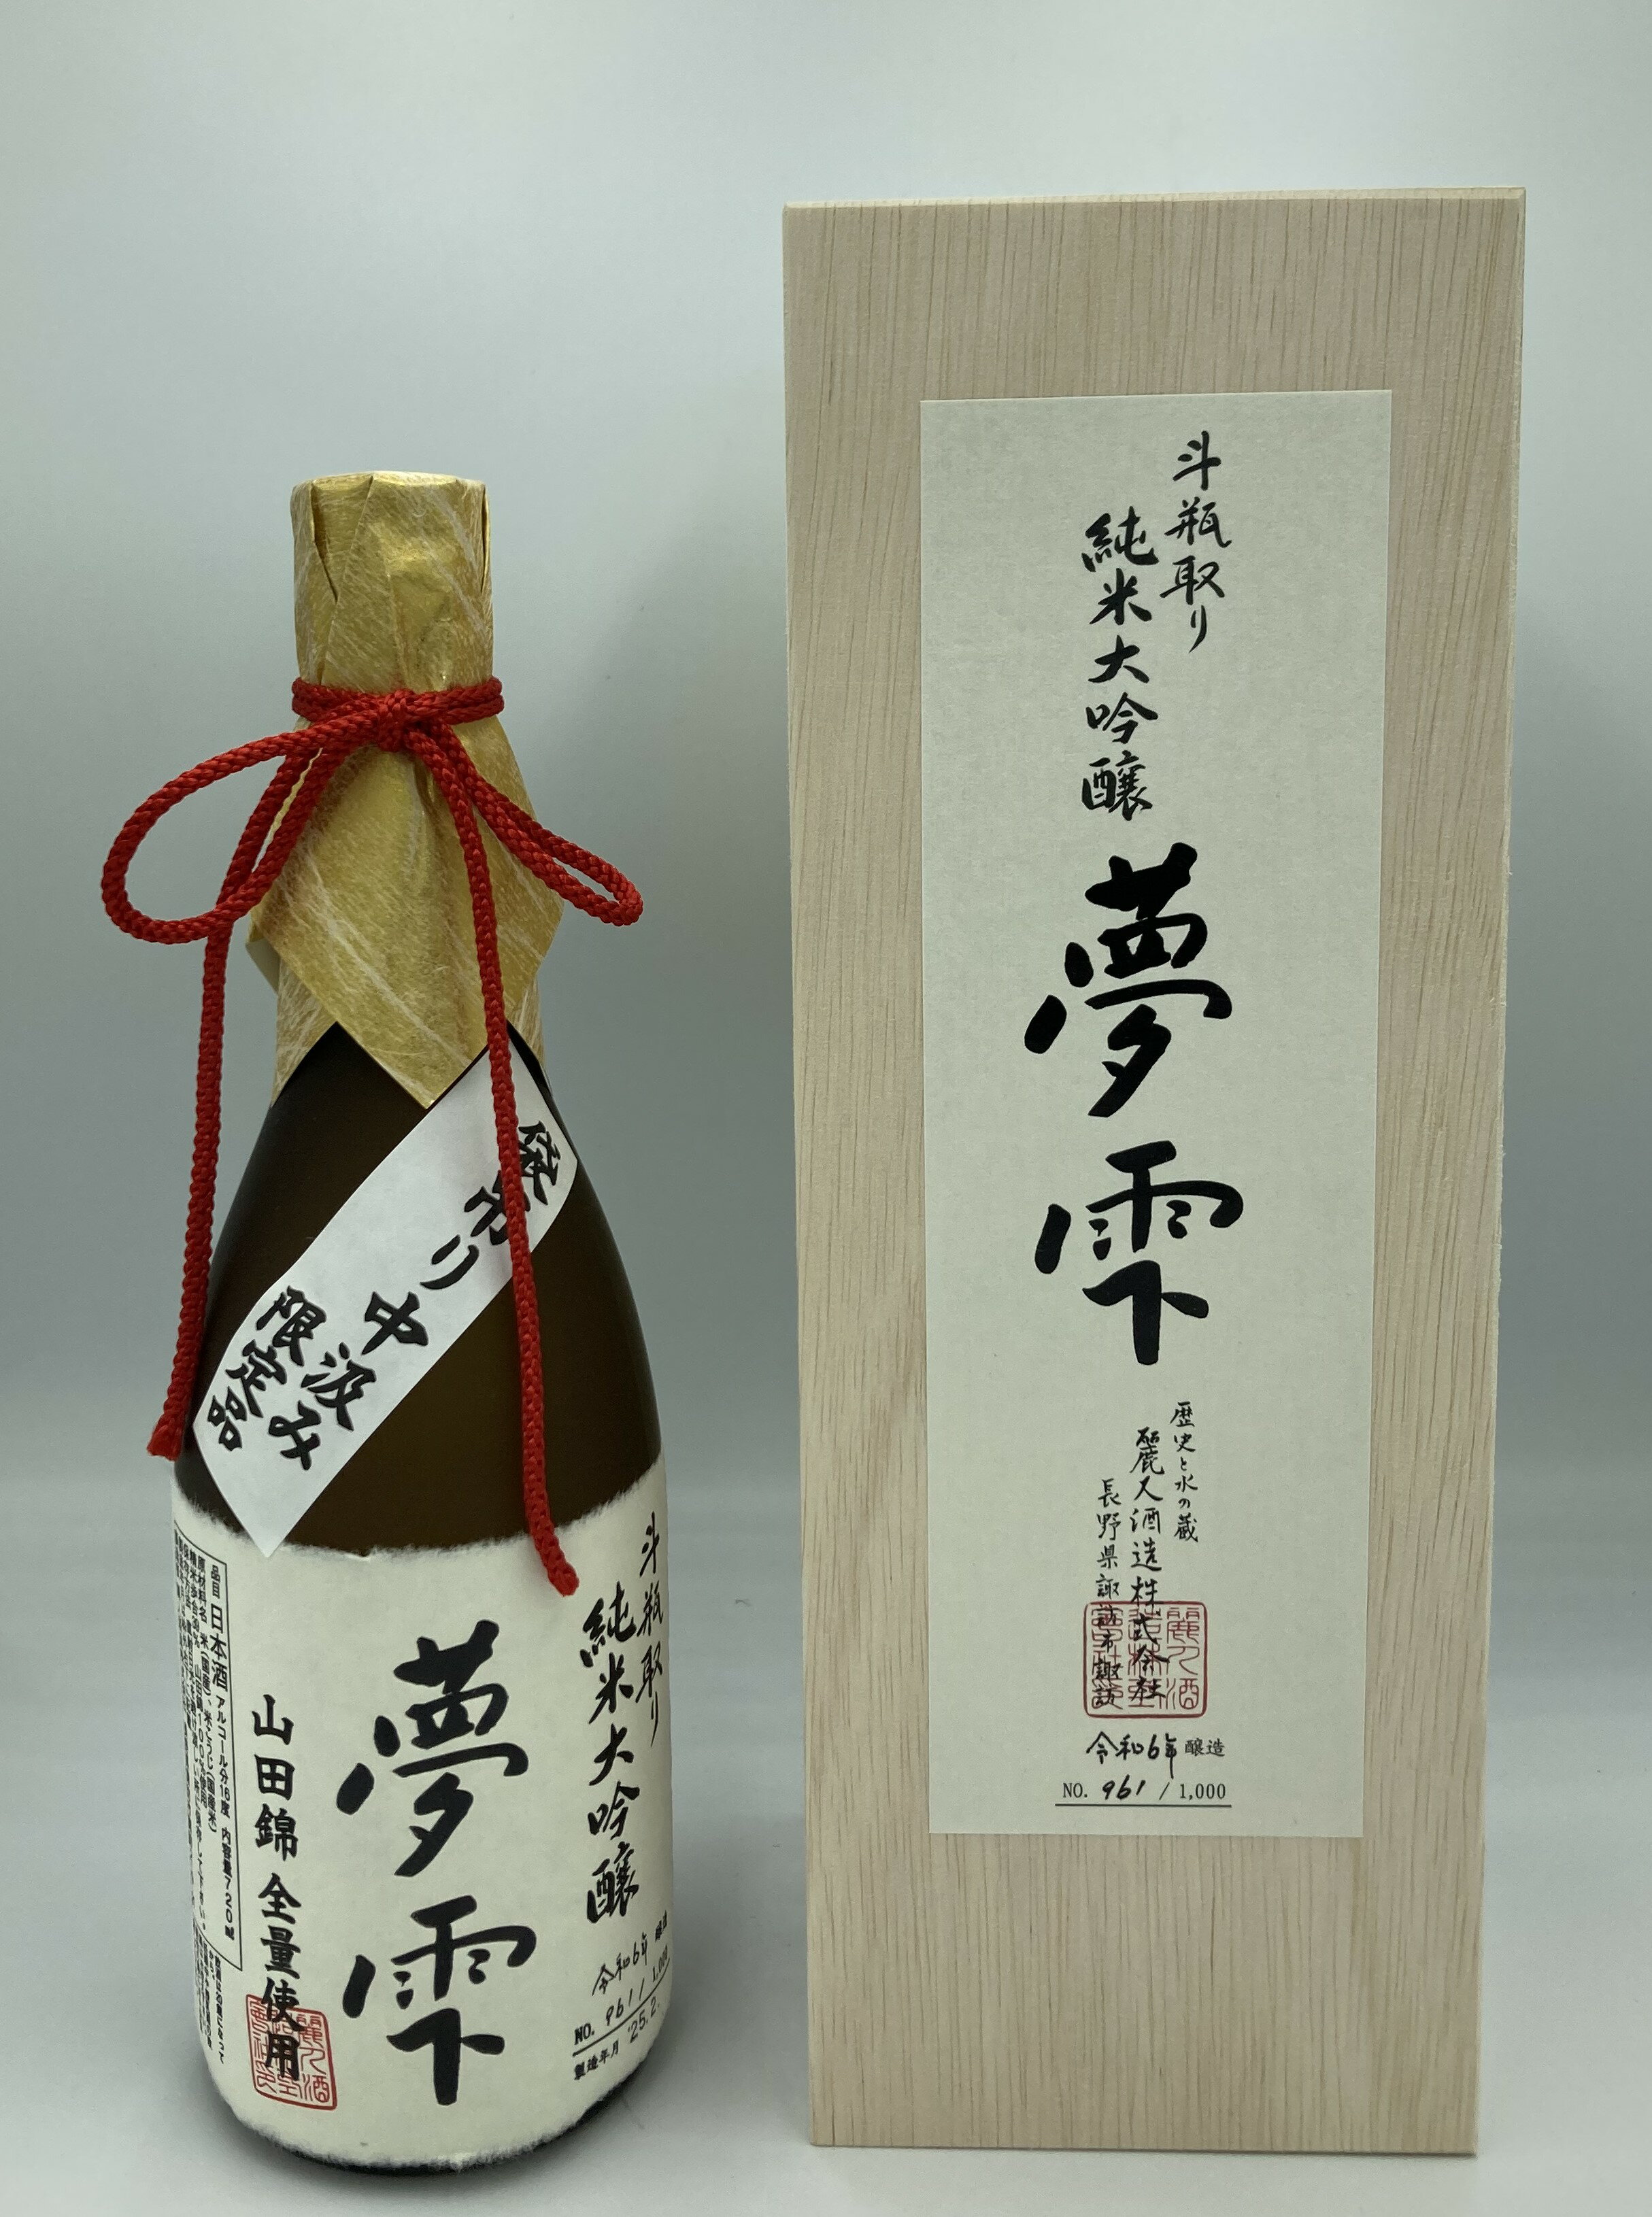 斗瓶取り
純米大吟醸
夢雫
歴史と水の蔵
麗人酒造株式会社
長野県諏訪市諏訪
令和6年 醸造
NO. 961 / 1,000
袋吊り 中汲み
限定品
斗瓶取り
純米大吟醸
令和6年 醸造
NO. 961 / 1,000
製造年月 '25.2.
夢雫
山田錦 全量使用
品目 日本酒 アルコール分16度 内容量720ml
原材料名 米(国産)、米こうじ(国産米)